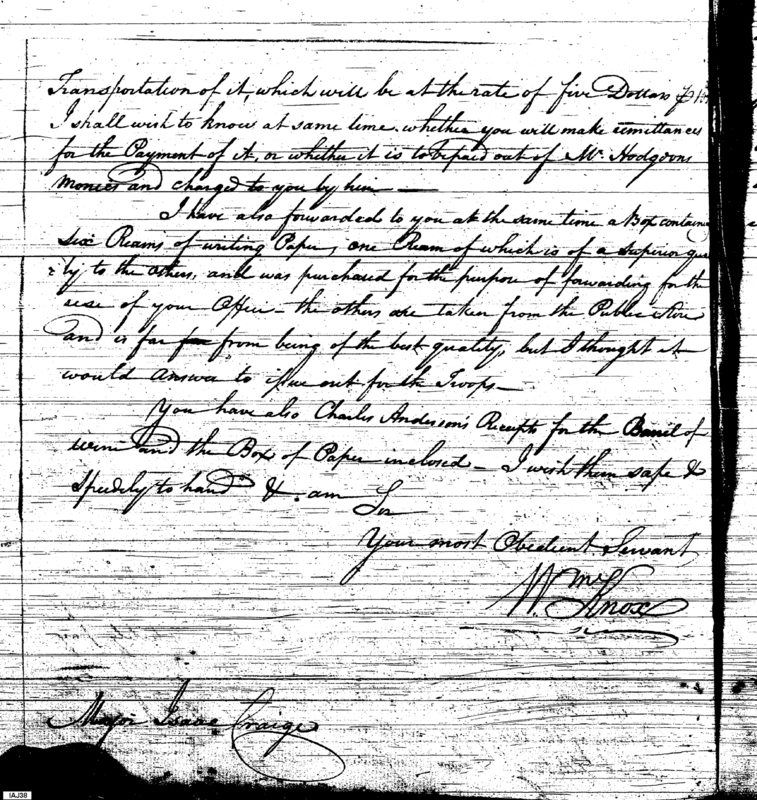 Transportation of it, which will be at the rate of five Dollars
I shall wish to know at same time whether you will make remittances
for the Payment of it, or whether it is to be paid out of Mr. Hodgdons
monies and charged to you by him —
I have also forwarded to you at the same time a Box containg
six Reams of writing Paper, one Ream of which is of a superior qua
lity to the others, and was purchased for the purpose of forwarding for the
use of your Office — the others are taken from the Public Store
and is far from being of the best quality, but I thought it
would answer to issue out for the Troops —
You have also Charles Anderson's Receipts for the Barril of
wine and the Box of Paper inclosed — I wish them safe &
Speedely to hand & am
Sir
Your most Obedient Servant
Wm Knox
Major Isaac Craige
IAJ38